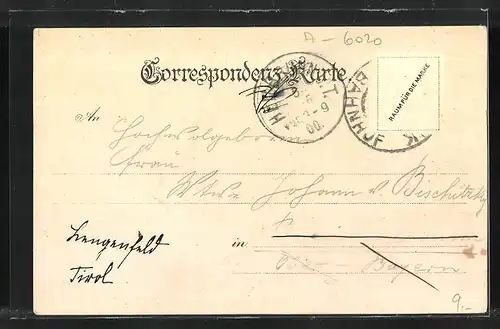 A - 6020
Correspondenz-Karte.
RAUM FÜR DIE MARKE
BAHNHOF
An Hochwolgeboren
Frau
Wtwe Johann v. Bischitzky
in
Bayern
Lengenfeld
Tirol
9.-